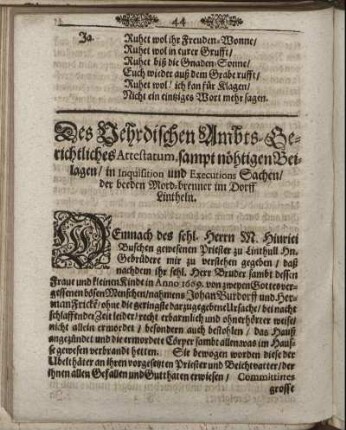 44
Ja. Ruhet wol ihr Freuden-Wonne/
Ruhet wol in eurer Grufft/
Ruhet biß die Gnaden-Sonne/
Euch wieder auß dem Grabe rufft/
Ruhet wol! ich kan für Klagen/
Nicht ein eintziges Wort mehr sagen.
Des Vehrdischen Ambts-Ge-
richtliches Attestatum, sampt nöhtigen Bei-
lagen/ in Inquisition und Executions Sachen/
der beeden Mord-brenner im Dorff
Lintheln.
DEmnach des sehl. Herrn M. Hinrici
Buschen gewesenen Priester zu Linthull Hn.
Gebrüdere mir zu verstehen gegeben/ daß
nachdem ihr sehl. Herr Bruder sambt dessen
Fraue und kleinen Kinde in Anno 1669. von zween Gottes ver-
gessenen bösen Menschen/ nahmens Johan Burdorff und Her-
man Fricke/ ohne die geringste darzu gegebene Ursache/ bei nacht
schlaffender Zeit leider/ recht erbarmlich und ohnerhörter weise/
nicht allein ermordet/ besondern auch bestohlen/ das Hauß
angezündet und die ermordete Cörper sambt allen was im Hau-
se gewesen verbrandt hetten. Sie bewogen worden diese der
Ubelthäter an ihren vorgesetzten Priester und Beichtvatter/ der
ihnen allen Gefallen und Gutthaten erwiesen/ Committirtes
grosse